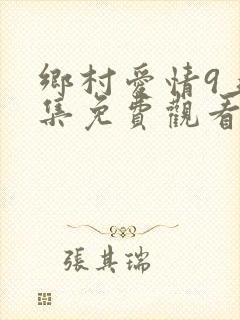 鄉村愛情9
集免費觀看
張其瑞